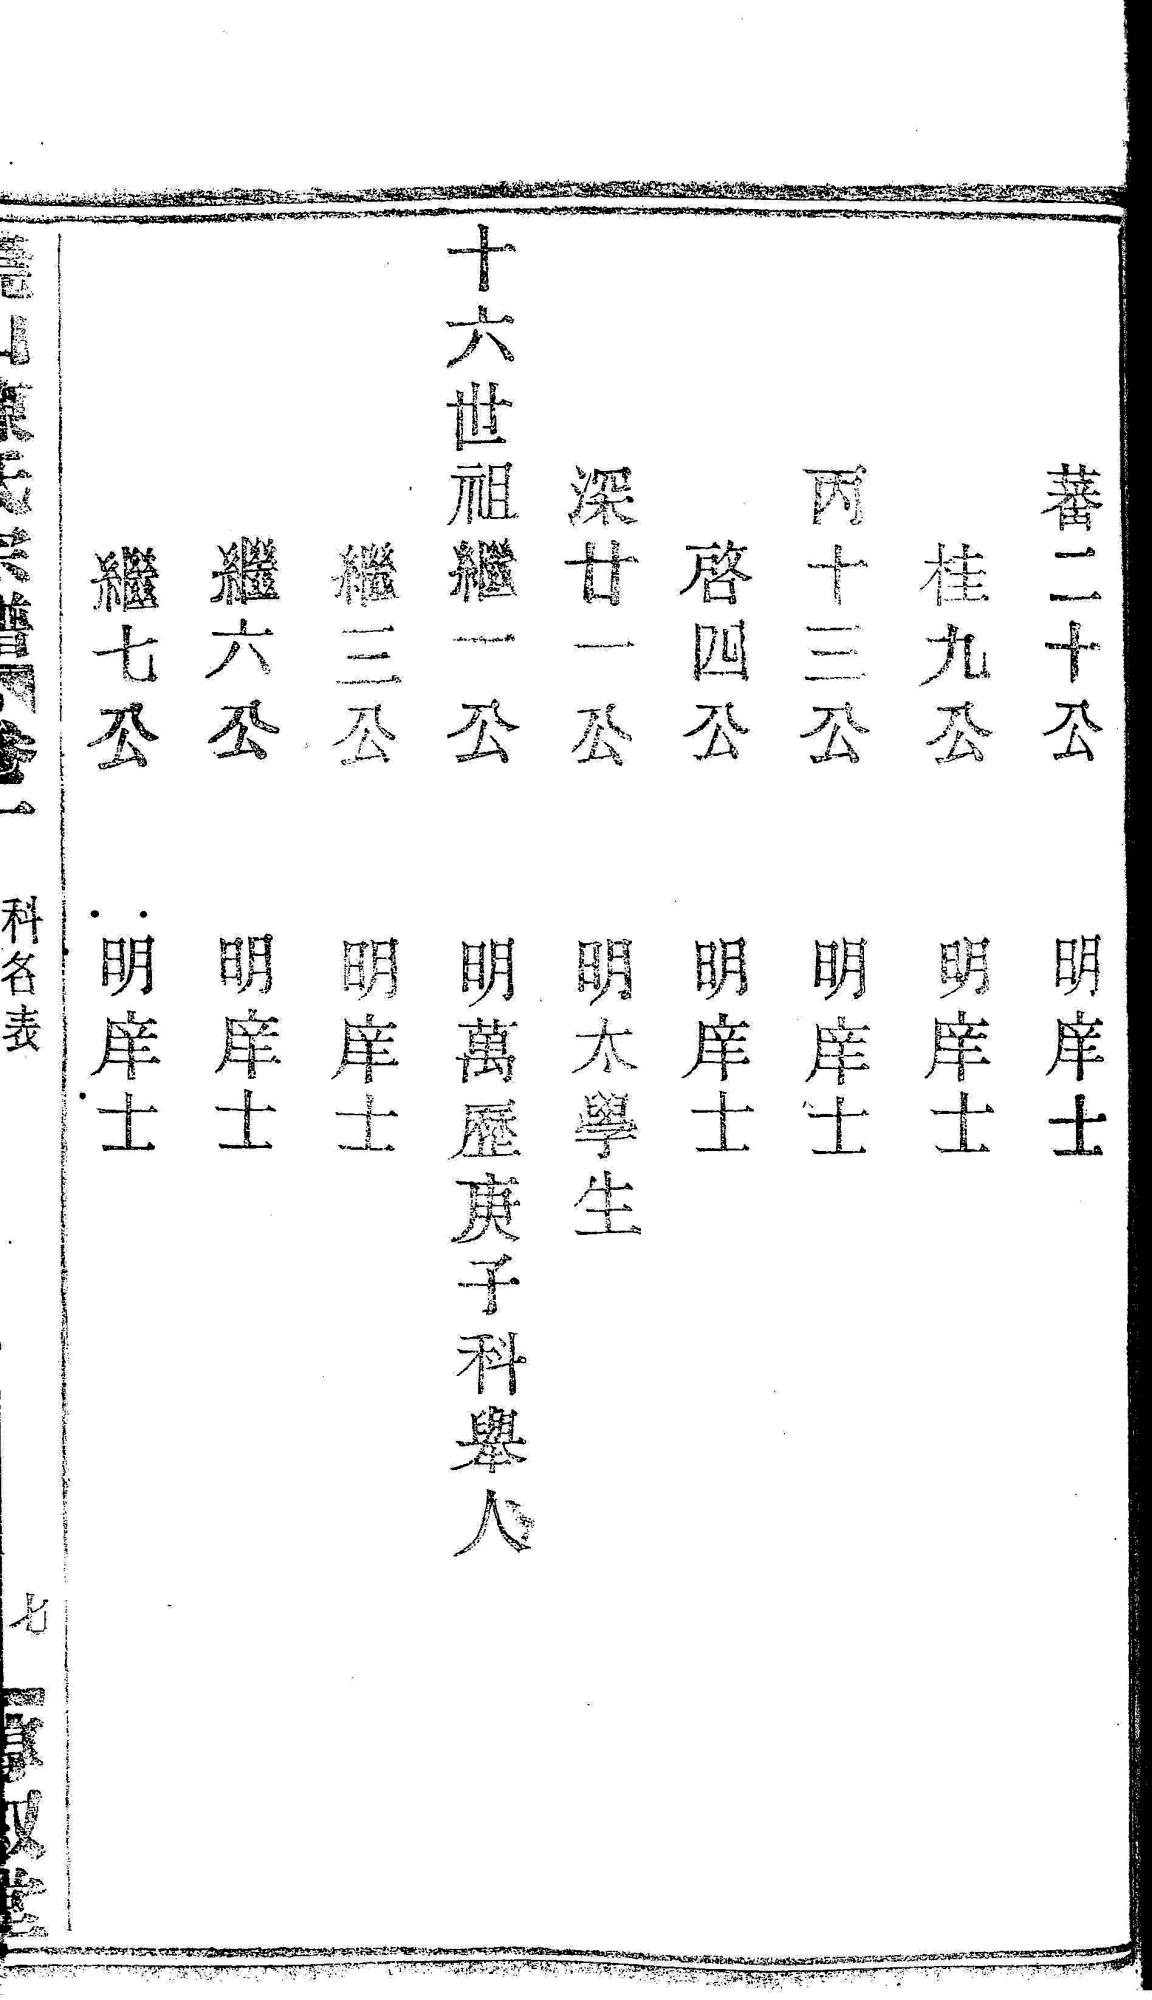 蕃二十公　明庠士
桂九公　明庠士
丙十三公　明庠士
啓四公　明庠士
深廿一公　明太學生
十六世祖繼一公　明萬歷庚子科舉人
繼三公　明庠士
繼六公　明庠士
繼七公　明庠士
山陳氏宗譜 卷一　科名表　七　敦敘堂